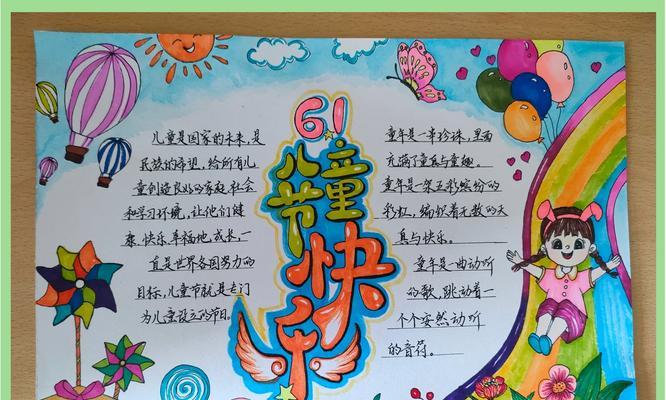 61
儿童
节
快
乐
儿童是国家的未来,是
民族的希望,给所有儿
童创造良好的家庭、社会
和学习环境,让他们健
康、快乐、幸福地成长,一
直是世界各国努力的
目标,儿童节就是专门
为儿童设立的节日。
童年是一串珍珠,里面
充满了童真与童趣。
童年是一架五彩缤纷的
彩虹,编织着无数的天
真与快乐。
童年是一曲动听
的歌,跳动着一
个个安然动听
的音符。